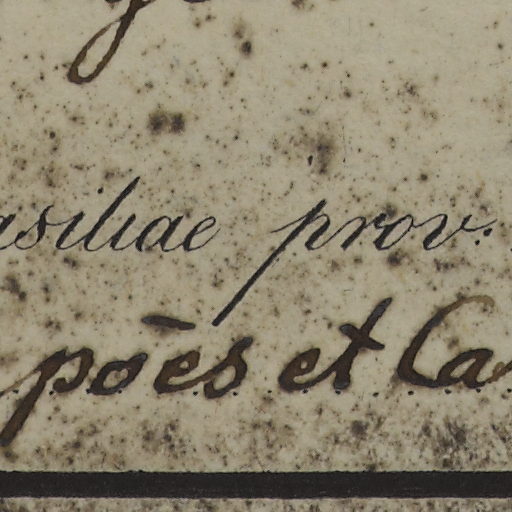 asiliae prov.
poēs et Ca